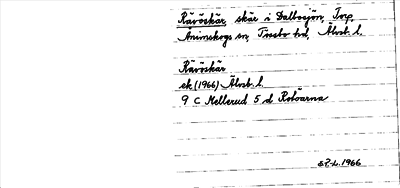 Rävöskär, skär i Dalbosjön, Torp,
Ånimskogs sn, Tössbo hd, Älvsb. l.
Rävöskär
ek (1966) Älvsb. l.
9 C Mellerud 5 d Rotöarna
1966